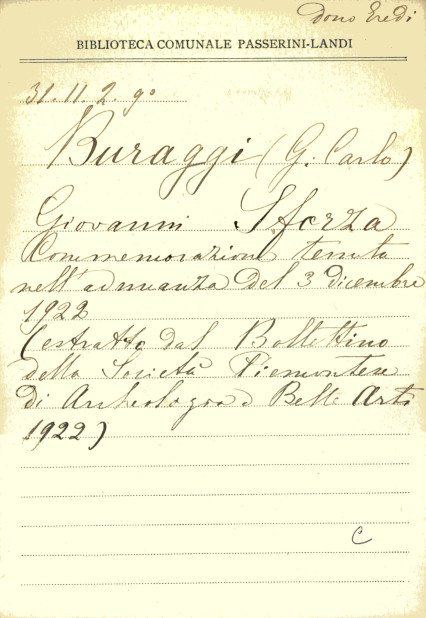 Dono Eredi
BIBLIOTECA COMUNALE PASSERINI-LANDI
31. 11. 2. 9°
Buraggi (G. Carlo)
Giovanni Sforza
Commemorazione tenuta
nell'adunanza del 3 dicembre
1922
(estratto dal Bollettino
della Società Piemontese
di Archeologia e Belle Arti
1922)
C